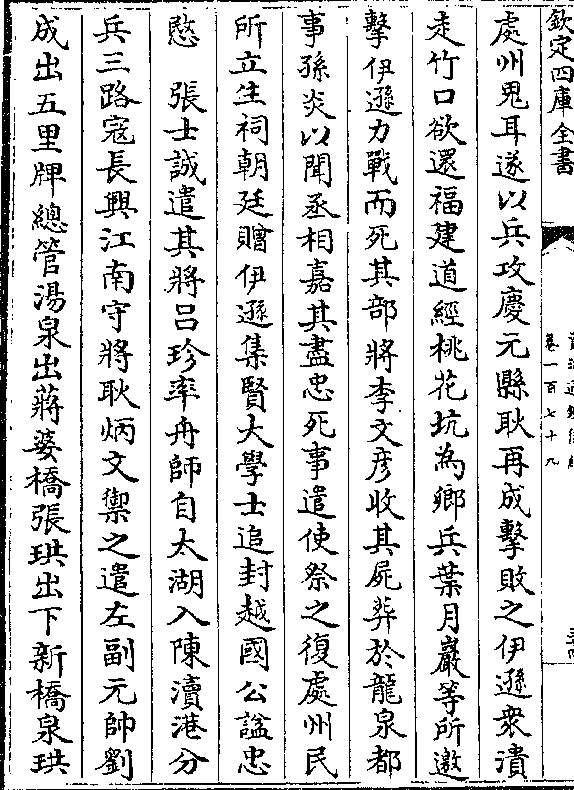 欽定四庫全書
卷一百七十九
處州鬼耳遂以兵攻慶元縣耿再成擊敗之伊遜衆潰
走竹口欲還福建道經桃花坑為鄉兵葉月巖等所邀
擊伊遜力戰而死其部將李文彦收其屍葬於龍泉都
事孫炎以聞丞相嘉其盡忠死事遣使祭之復處州民
所立生祠朝廷贈伊遜集賢大學士追封越國公諡忠
愍　張士誠遣其將吕珍率舟師自太湖入陳瀆港分
兵三路寇長興江南守將耿炳文禦之遣左副元帥劉
成出五里牌總管湯泉出蔣婆橋張珙出下新橋泉珙